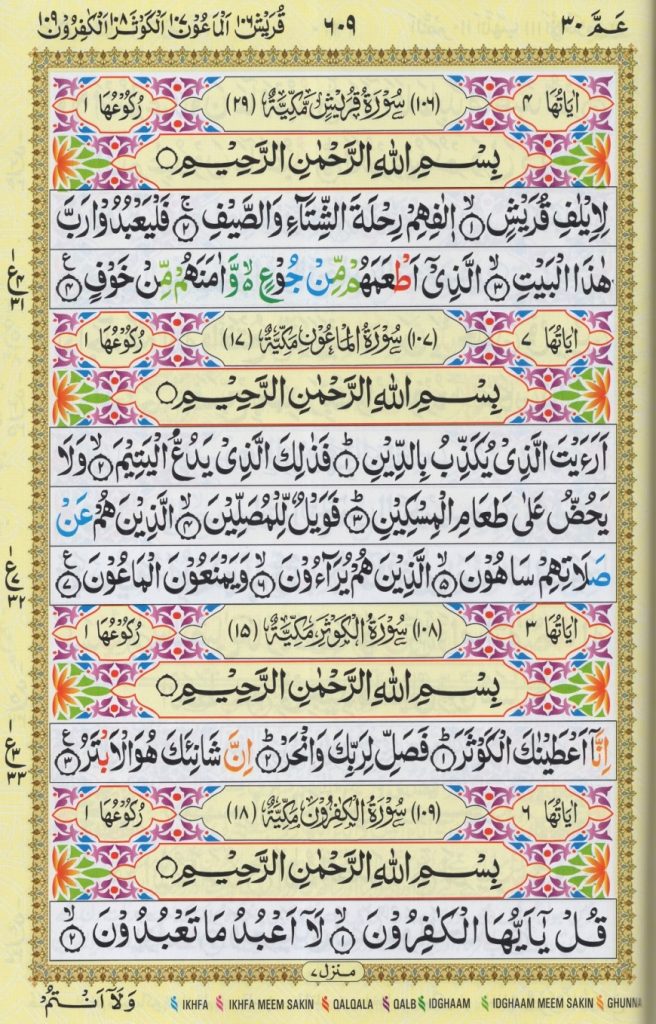 عَمَّ ٣٠
٦٠٩
قُرَيْش ١٠٦ اَلْمَاعُوْن ١٠٧ اَلْكَوْثَر ١٠٨ اَلْكٰفِرُوْن ١٠٩
اٰيَاتُهَا ٤ (١٠٦) سُوْرَةُ قُرَيْشٍ مَّكِّيَّةٌ (٢٩) رُكُوْعُهَا ١
بِسْمِ اللهِ الرَّحْمٰنِ الرَّحِيْمِ
لِاِيْلٰفِ قُرَيْشٍ ۙ‏﴿۱﴾ اٖلٰفِهِمْ رِحْلَةَ الشِّتَآءِ وَالصَّيْفِ ۚ‏﴿۲﴾ فَلْيَعْبُدُوْا رَبَّ
هٰذَا الْبَيْتِ ۙ‏﴿۳﴾ الَّذِيْۤ اَطْعَمَهُمْ مِّنْ جُوْعٍ ۙ۬ وَّاٰمَنَهُمْ مِّنْ خَوْفٍ ﴿۴﴾ ع
ع ٤ ٣١
اٰيَاتُهَا ٧ (١٠٧) سُوْرَةُ الْمَاعُوْنَ مَكِّيَّةٌ (١٧) رُكُوْعُهَا ١
بِسْمِ اللهِ الرَّحْمٰنِ الرَّحِيْمِ
اَرَءَيْتَ الَّذِيْ يُكَذِّبُ بِالدِّيْنِ ؕ‏﴿۱﴾ فَذٰلِكَ الَّذِيْ يَدُعُّ الْيَتِيْمَ ۙ‏﴿۲﴾ وَلَا
يَحُضُّ عَلٰى طَعَامِ الْمِسْكِيْنِ ؕ‏﴿۳﴾ فَوَيْلٌ لِّلْمُصَلِّيْنَ ۙ‏﴿۴﴾ الَّذِيْنَ هُمْ عَنْ
صَلَاتِهِمْ سَاهُوْنَ ۙ‏﴿۵﴾ الَّذِيْنَ هُمْ يُرَآءُوْنَ ۙ‏﴿۶﴾ وَيَمْنَعُوْنَ الْمَاعُوْنَ ﴿۷﴾ ع
ع ٧ ٣٢
اٰيَاتُهَا ٣ (١٠٨) سُوْرَةُ الْكَوْثَرِ مَكِّيَّةٌ (١٥) رُكُوْعُهَا ١
بِسْمِ اللهِ الرَّحْمٰنِ الرَّحِيْمِ
اِنَّاۤ اَعْطَيْنٰكَ الْكَوْثَرَ ؕ‏﴿۱﴾ فَصَلِّ لِرَبِّكَ وَانْحَرْ ؕ‏﴿۲﴾ اِنَّ شَانِئَكَ هُوَ الْاَبْتَرُ ﴿۳﴾ ع
ع ٣ ٣٣
اٰيَاتُهَا ٦ (١٠٩) سُوْرَةُ الْكٰفِرُوْنَ مَكِّيَّةٌ (١٨) رُكُوْعُهَا ١
بِسْمِ اللهِ الرَّحْمٰنِ الرَّحِيْمِ
قُلْ يٰۤاَيُّهَا الْكٰفِرُوْنَ ۙ‏﴿۱﴾ لَاۤ اَعْبُدُ مَا تَعْبُدُوْنَ ۙ‏﴿۲﴾
منزل ٧
وَلَاۤ اَنْتُمْ
IKHFA IKHFA MEEM SAKIN QALQALA QALB IDGHAAM IDGHAAM MEEM SAKIN GHUNNA